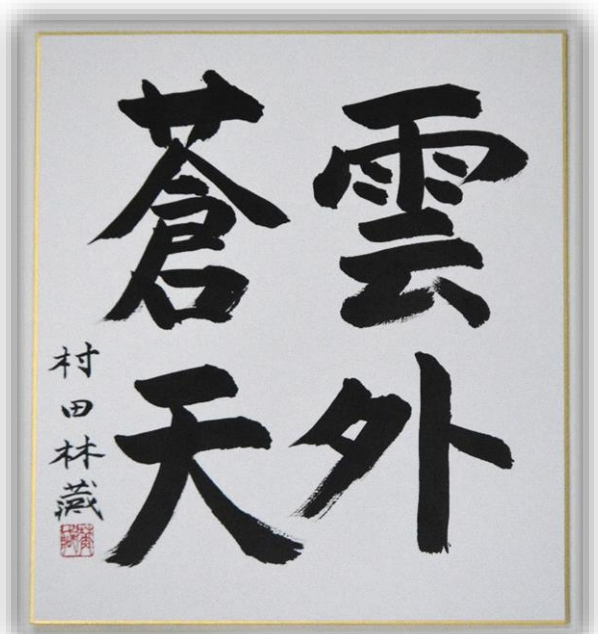 雲外
蒼天
村田林蔵